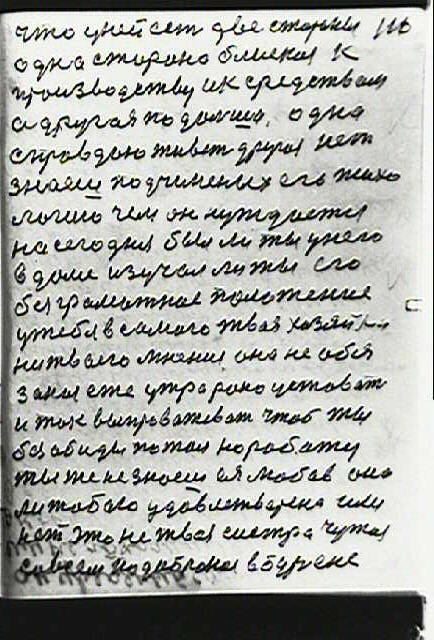 что у ней ест две стороны 116
одна сторона близкая к
производству и к средствам
а другая подальше, одна
справдою живет другая нет
знаеш подчиненых его психо
логию чем он нуждается
на сегодня был ли ты у него
в доме изучал ли ты его
безграмотное положение
у тебя в самого твоя хозяйка
на твоего мнения она не обя
зана еже утра рано уставать
и так выправаживат чтоб ты
без обиды пошол на работу
ты же не знаеш ея любов она
ли тобаю удовлетварена или
нет это не твоя систра чужая
совсем подобраная в буряне